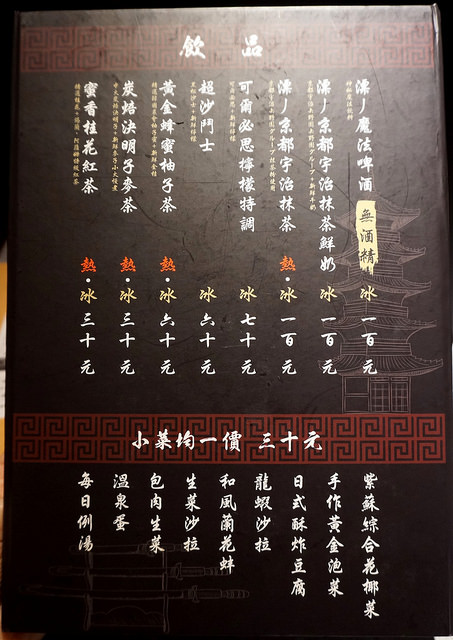 飲品
漂ノ魔法啤酒
無酒精
冰 一百元
漂ノ京都宇治抹茶鮮奶
冰 一百元
漂ノ京都宇治抹茶
熱・冰 一百元
可爾必思檸檬特調
冰 七十元
超沙鬥士
冰 六十元
黃金蜂蜜柚子茶
熱・冰 六十元
炭焙決明子麥茶
熱・冰 三十元
蜜香桂花紅茶
熱・冰 三十元
小菜均一價 三十元
紫蘇綜合花椰菜
手作黃金泡菜
日式酥炸豆腐
龍蝦沙拉
和風蘭花蚌
生菜沙拉
包肉生菜
溫泉蛋
每日例湯